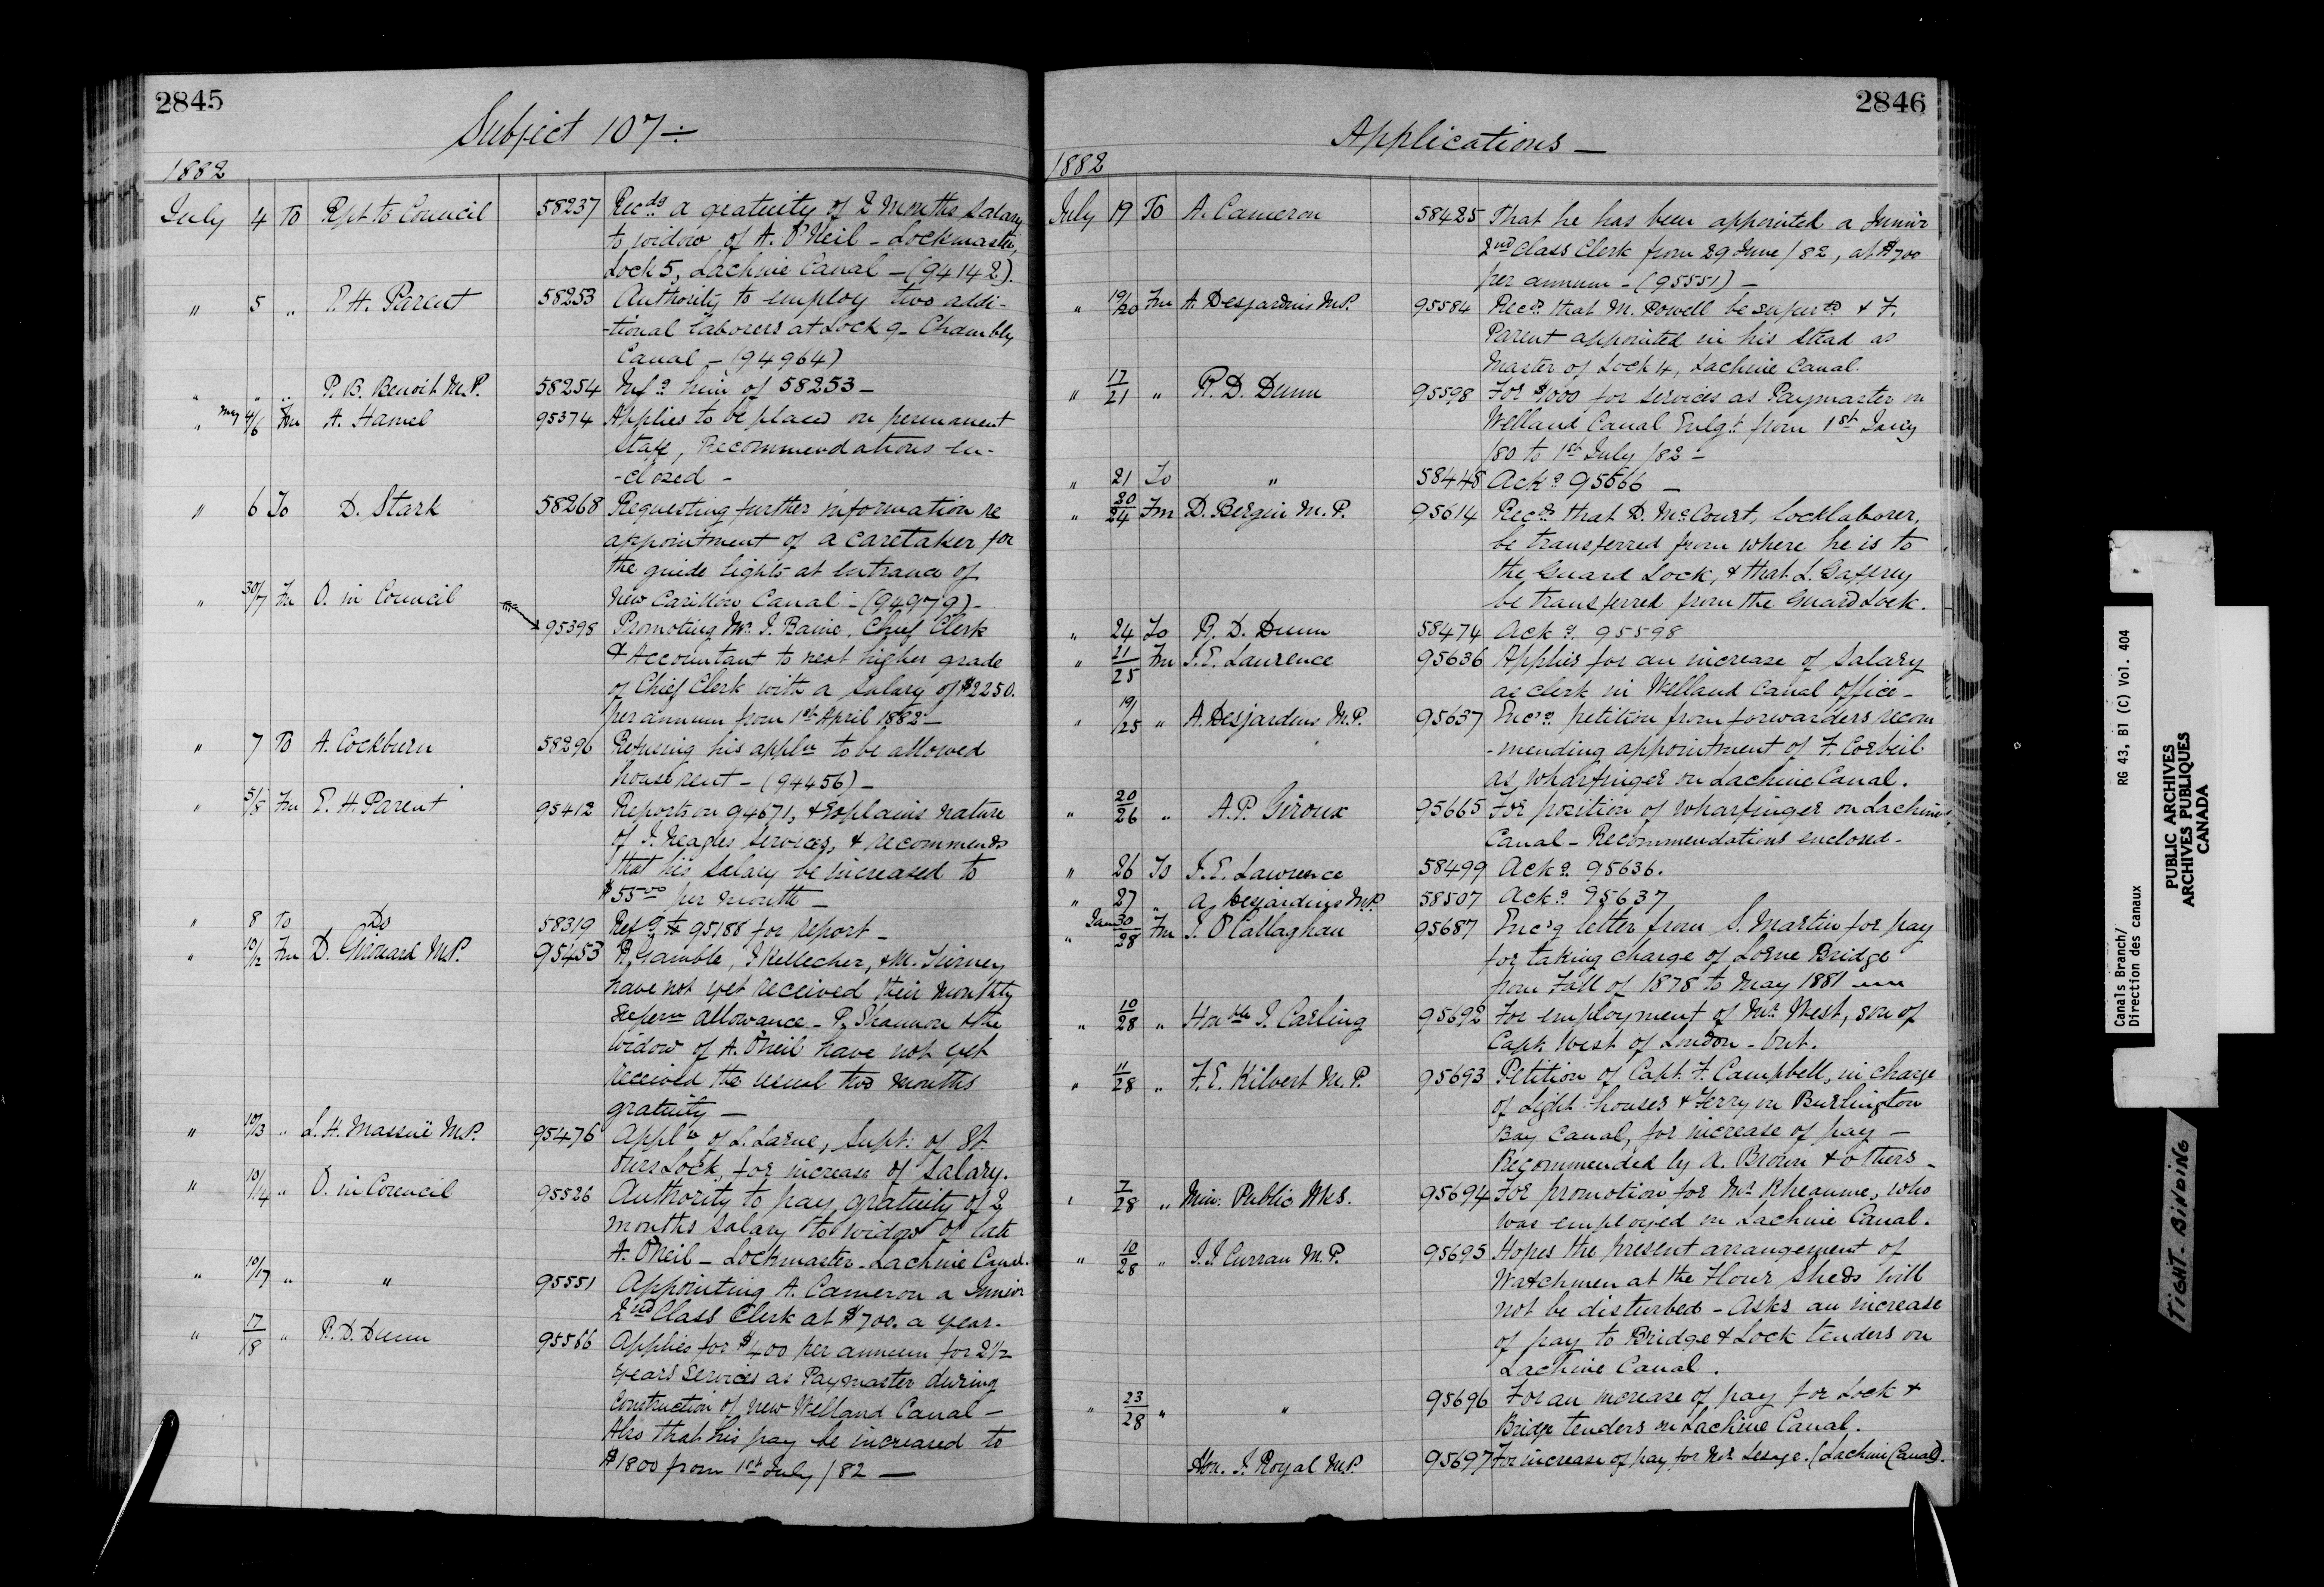 2845
Subject 107 ÷
1882
July 4 To Rpt to Council 58237 Rec.ds a gratuity of 2 months salary
to widow of A. O'Neil - Lockmaster,
Lock 5, Lachine Canal - (94142).
" 5 " E. H. Parent 58253 Authority to employ two addi-
-tional laborers at Lock 9 - Chambly
Canal - (94964)
" " " P. B. Benoit M.P. 58254 Inf.g him of 58253 -
" May 4/6 Fm A. Hamel 95374 Applies to be placed on permanent
Staff, Recommendations en-
-closed -
" 6 To D. Stark 58268 Requesting further information re
appointment of a caretaker for
the guide lights at entrance of
New Carillon Canal - (94979) -
" 30/7 Fm O. in Council
95398 Promoting Mr. J. Baine, Chief Clerk
& Accountant to next higher grade
of Chief Clerk with a salary of $2250.
per annum from 1st April 1882 -
" 7 To A. Cockburn 58296 Refusing his appln to be allowed
house rent - (94456) -
" 5/8 Fm E. H. Parent 95412 Reports on 94671, & Explains nature
of J. Neagles services, & recommends
that his salary be increased to
$55.00 per month -
" 8 To Do 58319 Ref.g 95188 for report -
" 10/12 Fm D. Girouard M.P. 95453 P. Gamble, J Kellecher, & M. Tierney
have not yet received their monthly
Superm allowance - P. Shannon & the
widow of A. O'Neil have not yet
received the usual two months
gratuity -
" 10/13 " L. H. Massuë M.P. 95476 Appln of L. Larue, Supt: of St.
Ours Lock, for increase of Salary.
" 10/14 " O. in Council 95526 Authority to pay gratuity of 2
months salary to widow of late
A. O'Neil - Lockmaster - Lachine Canal.
" 10/17 " " 95551 Appointing A. Cameron a Junior
2nd Class Clerk at $700. a year.
" 17/18 " R. D. Dunn 95566 Applies for $400 per annum for 2½
years services as Paymaster during
construction of new Welland Canal -
Also that his pay be increased to
$1800 from 1st July /82 -
2846
Applications -
1882
July 19 To A. Cameron 58425 That he has been appointed a Junior
2nd Class Clerk from 29 June /82, at $700
per annum - (95551) -
" 19/20 Fm A. Desjardins M.P. 95584 Rec.ds that M. Powell be superd & F.
Parent appointed in his stead as
Master of Lock 4, Lachine Canal.
" 17/21 " R. D. Dunn 95598 For $1000 for services as Paymaster on
Welland Canal Enlgt. from 1st Jany
/80 to 1st July /82 -
" 21 To " 58448 Ack.g 95566 -
" 20/24 Fm D. Bergin M.P. 95614 Rec.ds that D. McCourt, Locklaborer,
be transferred from where he is to
the Guard Lock, & that L. Gaffrey
be transferred from the Guard Lock.
" 24 To R. D. Dunn 58474 Ack.g 95598
" 21/25 Fm J. E. Laurence 95636 Applies for an increase of Salary
as clerk in Welland Canal Office -
" 19/25 " A. Desjardins M.P. 95637 Enc.g petition from forwarders recom
-mending appointment of F. Corbeil
as wharfinger on Lachine Canal.
" 20/26 " A. P. Giroux 95665 For position of wharfinger on Lachine
Canal - Recommendations enclosed -
" 26 To J. E. Lawrence 58499 Ack.g 95636.
" 27 " A. Desjardins M.P. 58507 Ack.g 95637
" 30/28 Fm J. O'Callaghan 95687 Enc.g letter from S. Martin for pay
for taking charge of Lorne Bridge
from Fall of 1878 to May 1881
" 10/28 " Honble J. Carling 95692 For employment of Mr. West, son of
Capt. West of London - Ont.
" 11/28 " F. E. Kilvert M.P. 95693 Petition of Capt. F. Campbell, in charge
of Light-houses & Ferry on Burlington
Bay Canal, for increase of pay -
Recommended by A. Brown & others -
" 7/28 " Min. Public Wks. 95694 For promotion for Mr. Rheaume, who
was employed on Lachine Canal.
" 10/28 " J. J. Curran M.P. 95695 Hopes the present arrangement of
Watchmen at the Flour Sheds will
not be disturbed - Asks an increase
of pay to Bridge & Lock tenders on
Lachine Canal.
" 23/28 " " 95696 For an increase of pay for Lock &
Bridge tenders on Lachine Canal.
Hon. J. Royal M.P. 95697 For increase of pay for Mr. Lesage. (Lachine Canal).
Canals Branch/ RG 43, B1 (C) Vol. 404
Direction des canaux
PUBLIC ARCHIVES
ARCHIVES PUBLIQUES
CANADA
TIGHT BINDING